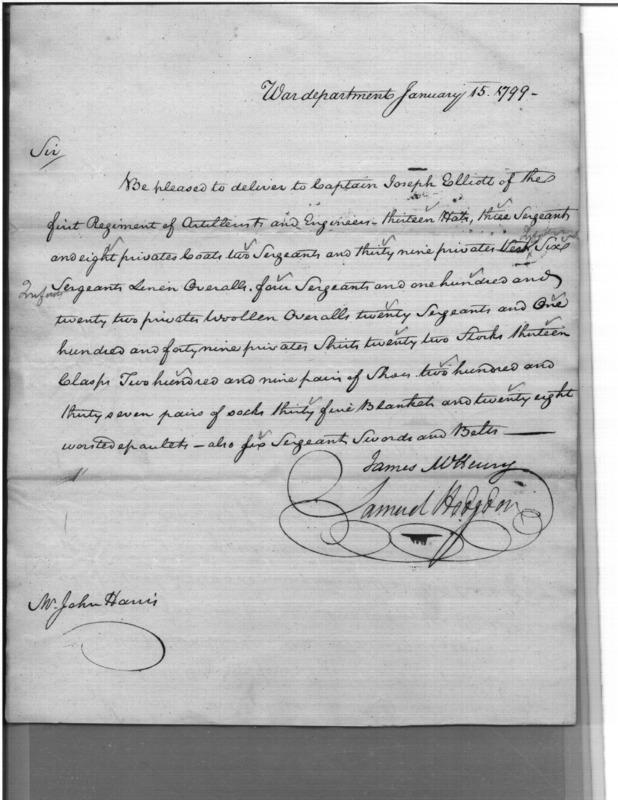 War department January 15. 1799-
Sir
Be pleased to deliver to Captain Joseph Elliott of the
first Regiment of Artillerists and Engineers - thirteen Hats, three Sergeants
and eight privates Coats two Sergeants and thirty nine privates Vests Six
Sergeants Linen Overalls. four Sergeants and one hundred and
twenty two privates Woollen Overalls twenty Sergeants and One
hundred and forty nine privates Shirts twenty two Stocks thirteen
Clasps Two hundred and nine pairs of Shoes two hundred and
thirty seven pairs of socks thirty five Blankets and twenty eight
worsted epaulets - also six Sergeants Swords and Belts —
James McHenry
Samuel Hodgdon
Mr. John Harris